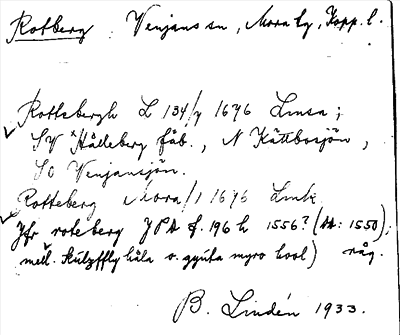 Rotberg Venjans sn, Mora tg, Kopp. l.
Rottebergh L 134/7 1696 Linsa;
SV Hålleberg fäb., N Kättbosjön,
SO Venjansjön.
Rotteberg Mora/1 1696 Link
Jfr roteberg JPA f. 196 h 1556? (AA: 1550);
mell. håla o. myro hool) råg.
B. Lindén 1933.